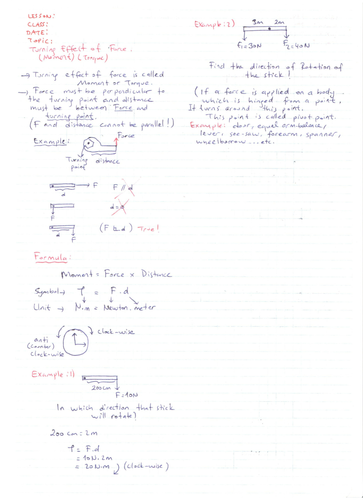 LESSON:
CLASS:
DATE:
TOPIC:
Turning Effect of Force.
(Moment) (Torque)
→ Turning effect of force is called
Moment or Torque.
→ Force must be perpendicular to
the turning point and distance
must be between Force and
turning point.
(F and distance cannot be parallel!)
Example:
Force
Turning point
distance
F
d
F // d
F
d=0
F
d
(F ⊥ d) True!
Formula:
Moment = Force x Distance
Symbol → τ = F.d
Unit → N.m = Newton.meter
clock-wise
Anti
(counter)
clock-wise
Example:1)
200cm
F=10N
In which direction that stick
will rotate?
200cm = 2m
τ = F.d
= 10N.2m
= 20N.m (clock-wise)
Example:2)
3m 2m
F₁=30N F₂=40N
Find the direction of Rotation of
the stick!
(If a force is applied on a body
which is hinged from a point,
It turns around this point.
This point is called pivot point.
Example: door, equal arm-balance,
lever, see-saw, forearm, spanner,
wheelbarrow...etc.